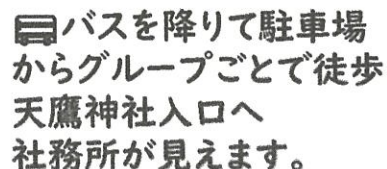 バスを降りて駐車場
からグループごとで徒歩
天鷹神社入口へ
社務所が見えます。